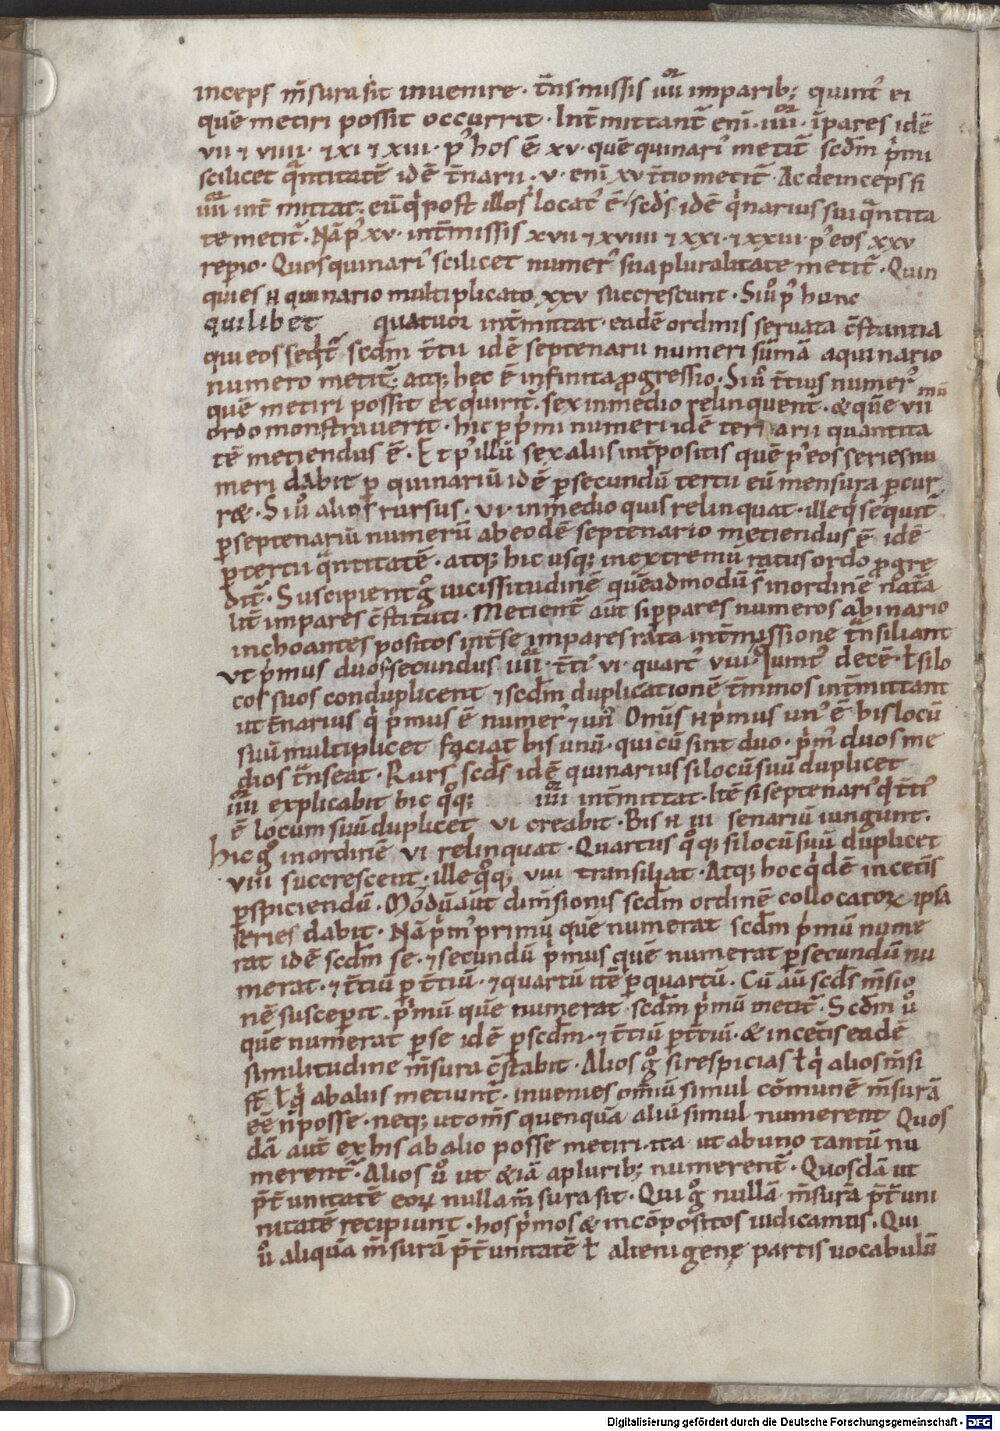 incepſ m̄ſura ſit invenire · t̄nſmiſſiſ iiii imparib; quint᾽ ei
quē metiri poſſit occurrit · Int̄mittant̄ eni᷑ · iiii · i᷑pareſ idē
vii ⁊ viiii · ⁊ xi ⁊ xiii · p᾽ hoſ ē xv · quē quinari᾽ metit̄ ſcd̄m p̓mi
ſcilicet q̄ntitatē idē t̄narii · v · eni᷑ xv t̄tio metit̄ · Ac deincepſ ſi
iiii int̄ mittat · eū q̓ poſt illoſ locat᾽ ē · ſcd̄ſ idē q̓nariuſ ſui q̄ntita
te metit̄ · Nā p᾽ xv · int̄miſſiſ xvii ⁊ xviiii ⁊ xxi · ⁊ xxiii · p᾽ eoſ xxv
reperio · Quoſ quinari᾽ ſcilicet numer᾽ ſua pluralitate metit̄ · Quin
quieſ n̄ quinario multiplicato xxv ſuccreſcunt · Si ů p᾽ hunc
quilibet quatuor int̄mittat · eadē ordiniſ ſervata c̄ſtantia
qui eoſ ſeq̄t̄ ſcd̄m t̄tii idē ſeptenarii numeri ſūmā a quinario
numero metit̄ · atq; hęc ē infinita ꝓgreſſio · Si ů t̄tiuſ numer᾽
quē metiri poſſit exquirit̄ · ſex in medio relinquent̄ · & quē vii mū
ordo monſtraverit · hic p̱ p̓mi numeri idē ternarii quantita
tē metienduſ ē · Et p᾽ illū ſex aliiſ int̄poſitiſ quē p᾽ eoſ ſerieſ nu
meri dabit p̱ quinariū idē p̱ ſecundū tertii eū menſura p̱cur
ret · Si ů alioſ rurſuſ · vi · in medio quiſ relinquat · ille q̓ ſequit̄
p̱ ſeptenariū numerū ab eodē ſeptenario metienduſ ē idē
p̱ tertii q̄ntitatē · atq; hic uſq; in extremū ratuſ ordo ꝓgre
dit̄ · Suſcipient g̊ viciſſitudinē quēadmodū ſt̄ in ordinē nat̄a
lit̄ impareſ c̄ſtituti · Metient̄ aut̄ ſi p̱ pareſ numeroſ a binario
inchoanteſ poſitoſ int̄ ſe impareſ rata int̄miſſione t̄nſiliant
vt p̓muſ duoſ ſecunduſ iiii · t̄ti᾽ vi · quart᾽ viii · quint᾽ decē · ł ſi lo
coſ ſuoſ conduplicent ⁊ ſcd̄m duplicationē t̄minoſ int̄mittant
ut t̄nariuſ q̓ p̓muſ ē numer᾽ ⁊ un᾽ Omīſ n̄ p̓muſ un᾽ ē biſ locū
ſuū multiplicet faciat biſ unū · qui cū ſint duo · p̓m᾽ duoſ me
dioſ t̄nſeat · Rurſ᾽ ſcd̄ſ idē quinariuſ ſi locū ſuū duplicet
iiii explicabit hic q̊q; iiii int̄mittat · Itē ſi ſeptenari᾽ q̓ t̄ti᾽
ē locum ſuū duplicet vi creabit · Biſ n̄ iii ſenariū iungunt ·
hic g̊ in ordinē vi relinquat · Quartuſ q̊q; ſi locū ſuū duplicet
viii ſuccreſcent · ille q̊q; viii tranſiliat · Atq; hoc q̓dē in cet̄iſ
p̱ſpiciendū · Modū aut̄ dim̄ſioniſ ſcd̄m ordinē collocatoꝝ ipſa
ſerieſ dabit · Nā p̓m᾽ primū quē numerat ſcd̄m p̓mū nume
rat idē ſcd̄m ſe · ⁊ ſecundū p̓muſ quē numerat p̱ ſecundū nu
merat · ⁊ t̄tiū p̱ t̄tiū · ⁊ quartū itē p̱ quartū · Cū aū ſcd̄ſ m̄ſio
nē ſuſceperit · p̓mū quē numerat · ſcd̄m p̓mū metit̄ · Scd̄m ů
quē numerat p̱ ſe idē p̱ ſcd̄m · ⁊ t̄tiū p̱ t̄tiū · & in cet̄iſ eadē
ſimilitudine m̄ſura c̄ſtabit · Alioſ g̊ ſi reſpiciaſ ł q̓ alioſ m̄ſi
ſt̄ ł q̓ ab aliiſ metiunt̄ · invenieſ om̄iū ſimul cōmunē m̄ſurā
eē n̄ poſſe · neq; ut om̄ſ quenquā aliū ſimul numerent Quoſ
dā aut̄ ex hiſ ab alio poſſe metiri · ita ut ab uno tantū nu
merent̄ · Alioſ ů ut &iā a plurib; numerent̄ · Quoſdā ut
p̄t̄ unitatē eoꝝ nulla m̄ſura ſit · Qui g̊ nullā m̄ſurā p̄t̄ uni
nitatē recipiunt · hoſ p̓moſ & incōpoſitoſ iudicamuſ · Qui
ů aliquā m̄ſurā p̄t̄ unitatē ł alienigenę partiſ vocabulū